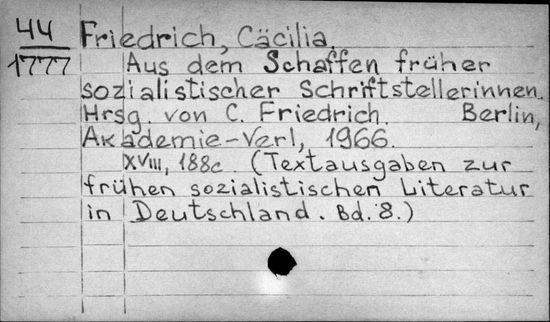 44 Friedrich, Cäcilia.
1777 Aus dem Schaffen früher
sozialistischer Schriftstellerinnen.
Hrsg. von C. Friedrich. Berlin,
Akademie-Verl, 1966.
XVIII, 188c (Textausgaben zur
frühen sozialistischen Literatur
in Deutschland. Bd. 8.)